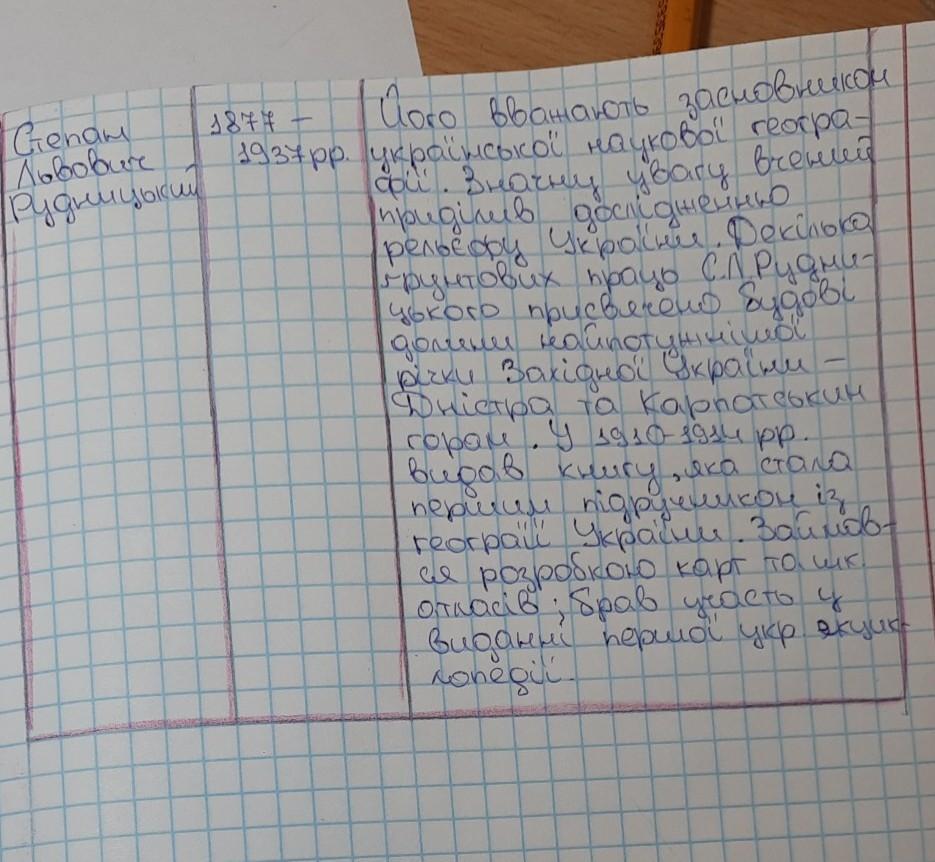 Степан
Львович
Рудницький
1877 –
1937рр.
Його вважають засновником
української наукової геогра-
фії. Значну увагу вчений
приділив дослідженню
рельєфу України. Декілька
ґрунтових праць С.Л.Рудни-
цького присвячено будові
долини найпотужнішої
річки Західної України –
Дністра та Карпатським
горам. У 1910-1914 рр.
видав книгу, яка стала
першим підручником із
географії України. Займав-
ся розробкою карт та шк.
атласів; брав участь у
виданні першої укр енцик-
лопедії.